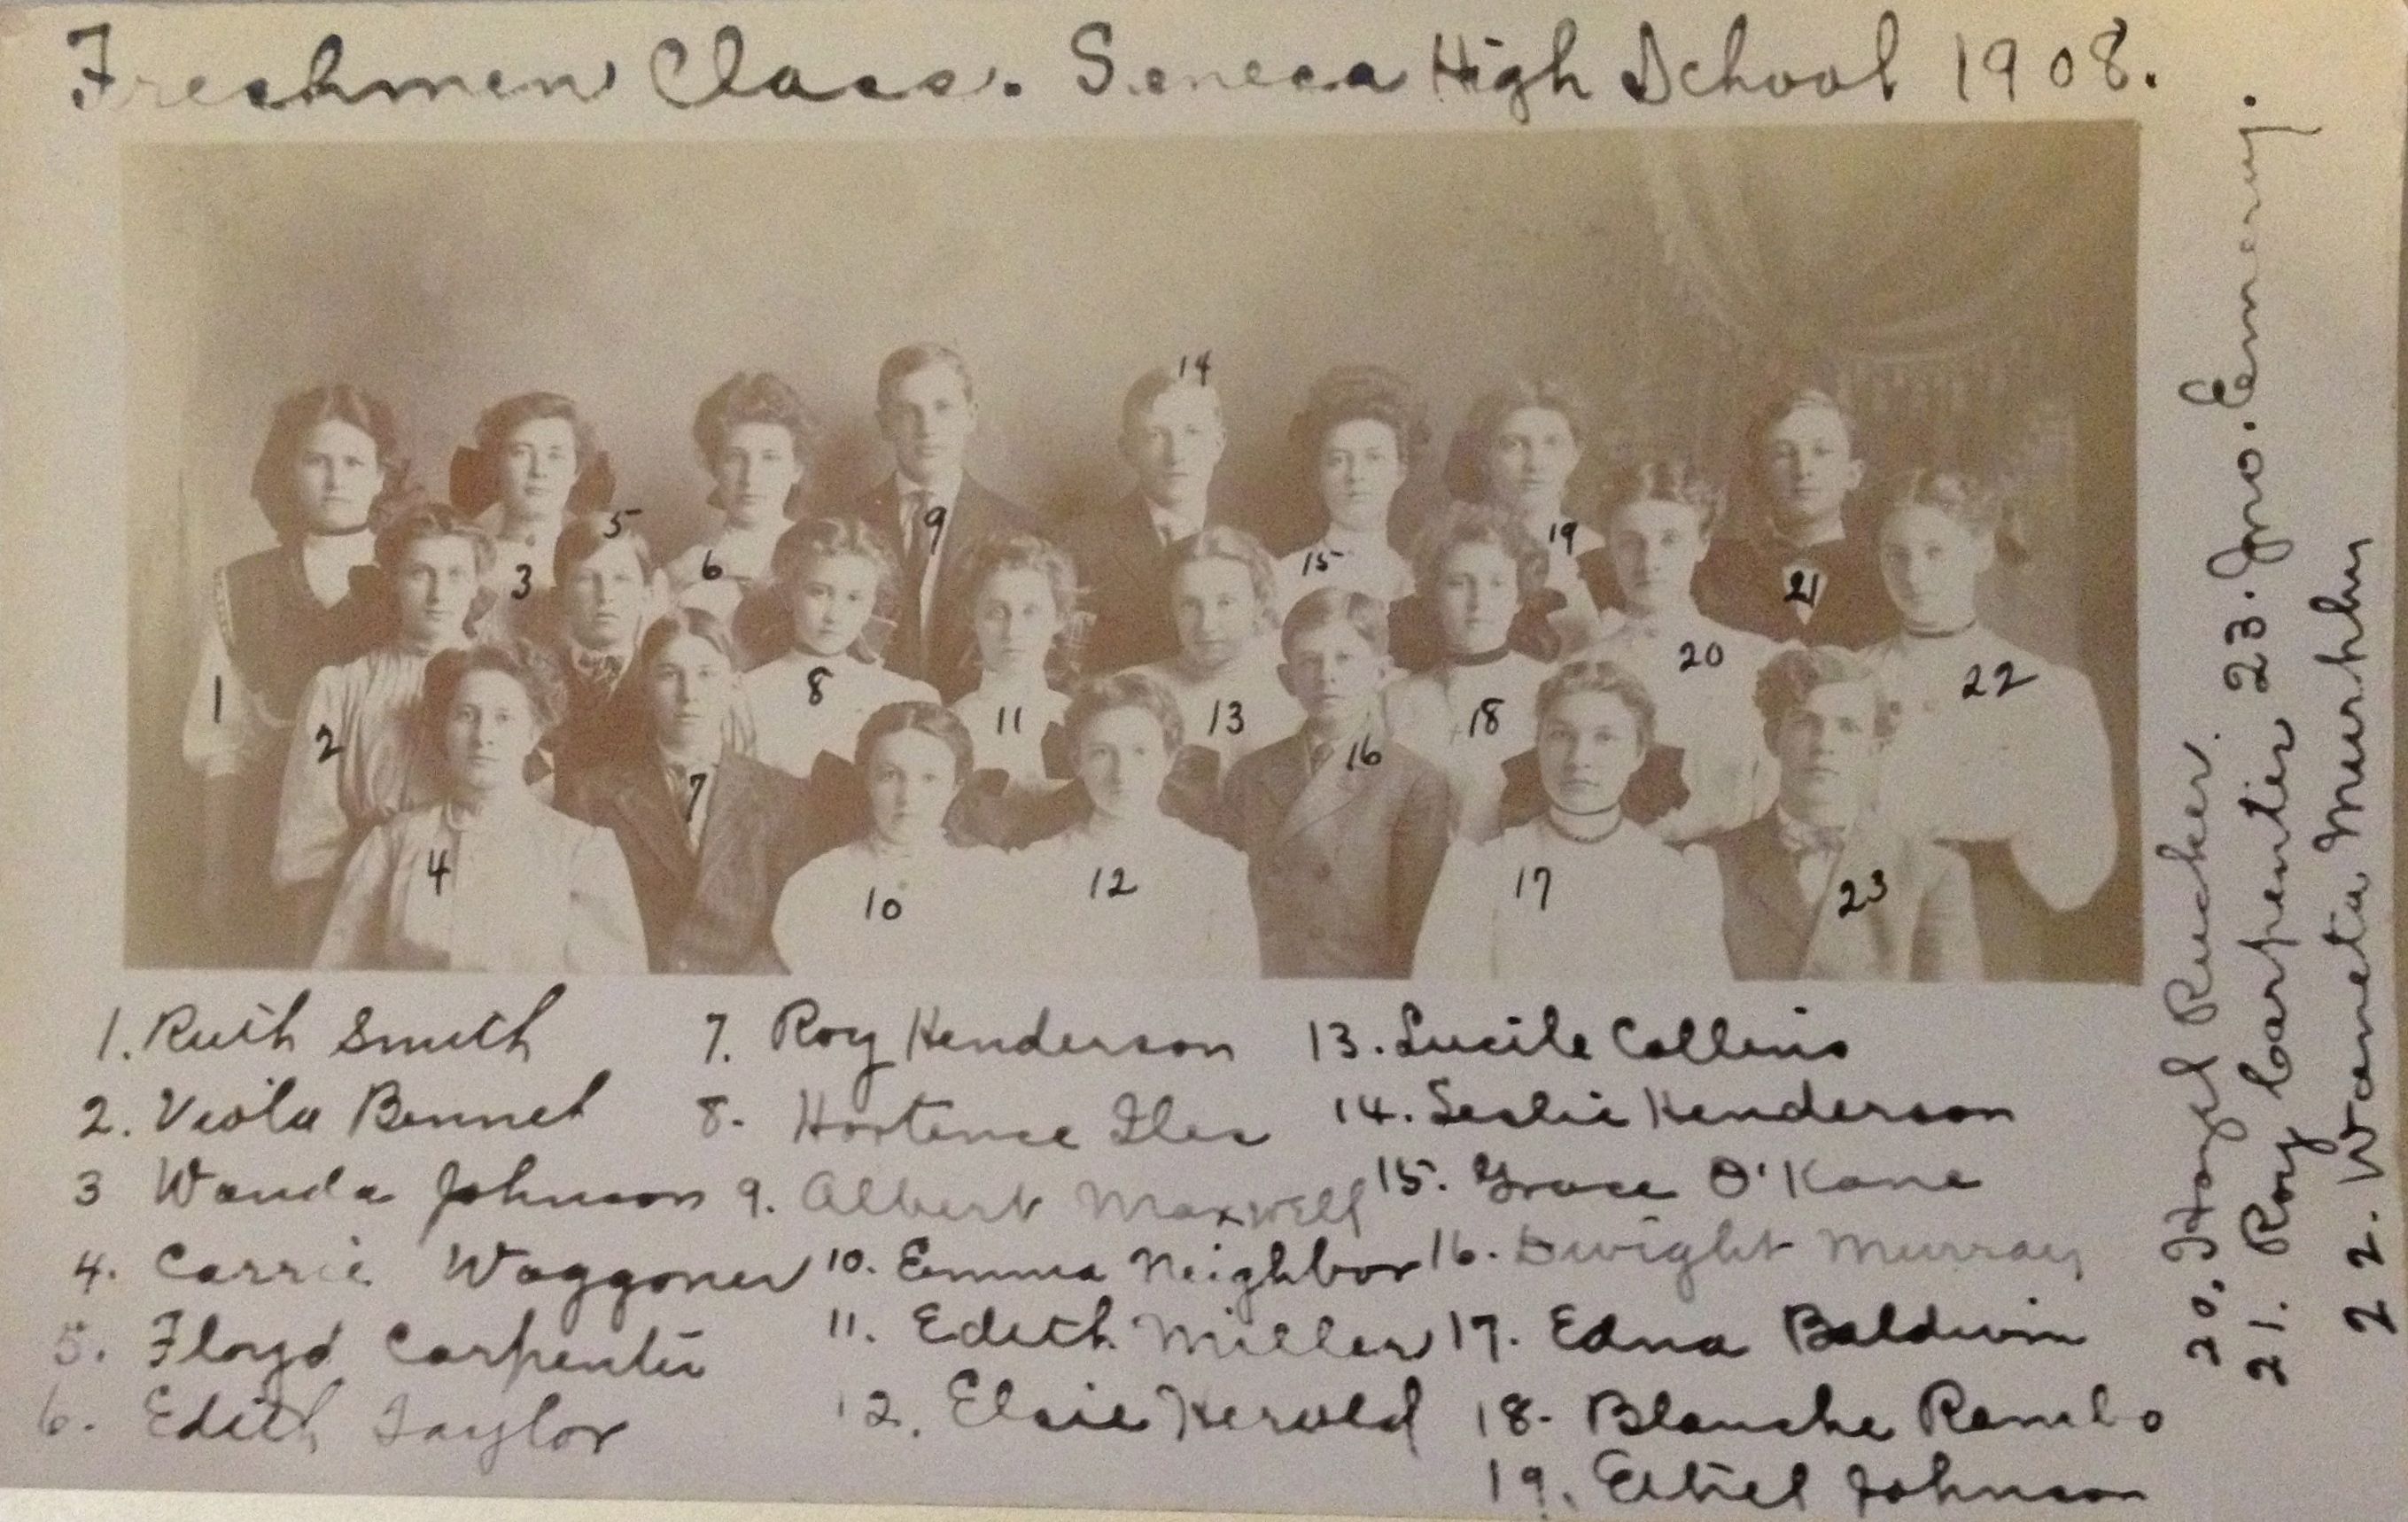 Freshmen Class. Seneca High School 1908.
14
5
9
19
3
6
15
21
1
2
8
11
13
20
22
18
16
7
4
10
12
17
23
1. Ruth Smith
2. Viola Bennet
3 Wanda Johnson
4. Carrie Waggoner
5. Floyd Carpenter
6. Edith Taylor
7. Roy Henderson
8. Hortence Iles
9. Albert Maxwell
10. Emma Neighbor
11. Edith Miller
12. Elsie Herold
13. Lucile Collins
14. Leslie Henderson
15. Grace O'Kane
16. Dwight Murray
17. Edna Baldwin
18- Blanche Rambo
19. Ethel Johnson
20. Hazel Rucker.
21. Roy Carpenter 23. Jno. Emmery.
22. Waneta Murphy